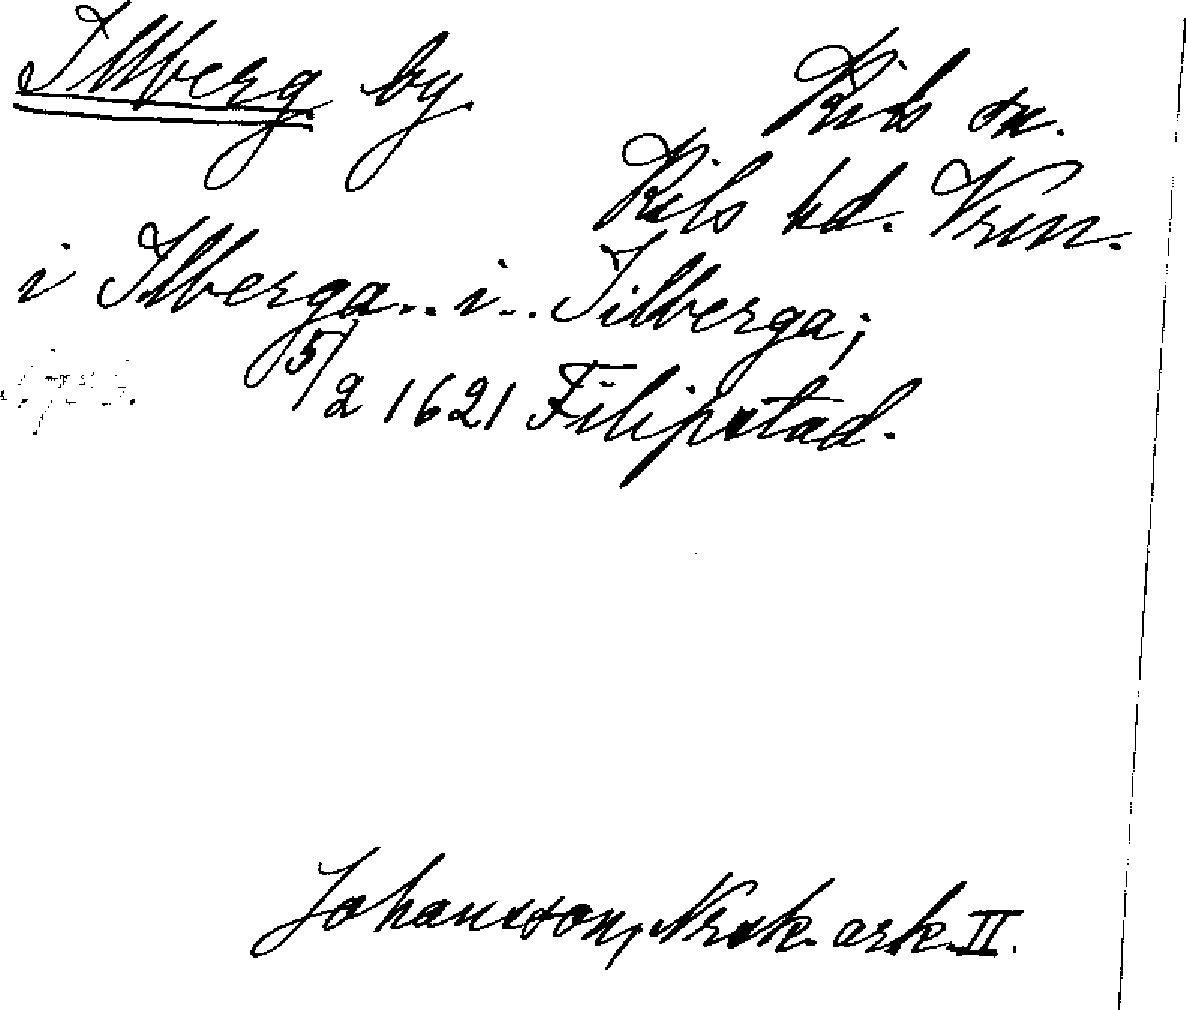 Illberg by.
Kils sn.
Kils hd. Vrm.
i Ilberga.. i.. Jilberga;
5/2 1621 Filipstad.
Johansson, Norsk. ark. II.